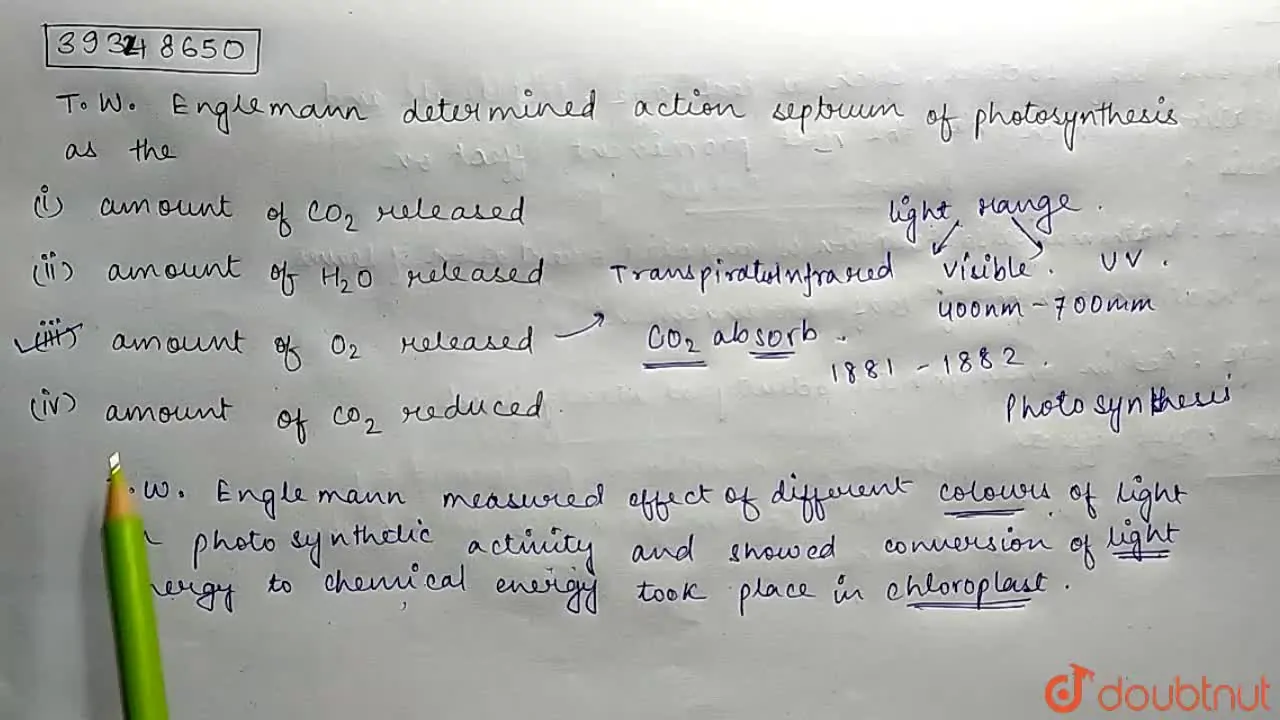 39348650
T. W. Englemann determined action septrum of photosynthesis
as the
(i) amount of CO2 released
light range.
(ii) amount of H2O released
Transpiration Infrared visible. UV.
400nm - 700mm
(iii) amount of O2 released
CO2 absorb.
1881 - 1882.
(iv) amount of CO2 reduced.
Photosynthesis
.W. Englemann measured effect of different colours of light
photosynthetic activity and showed conversion of light
nergy to chemical energy took place in chloroplast.
doubtnut